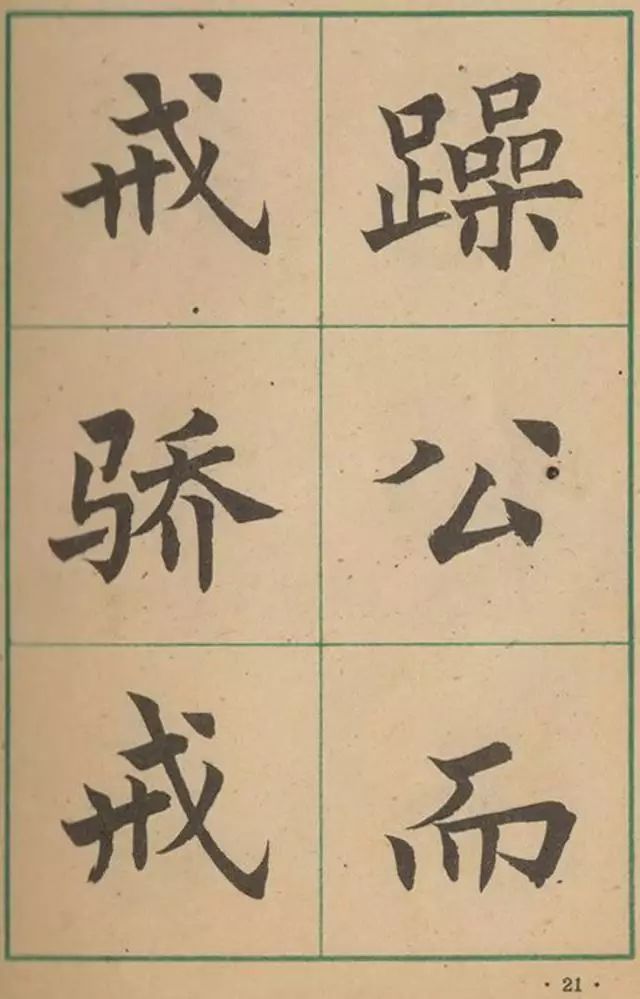 戒骄戒
躁公而
· 21 ·